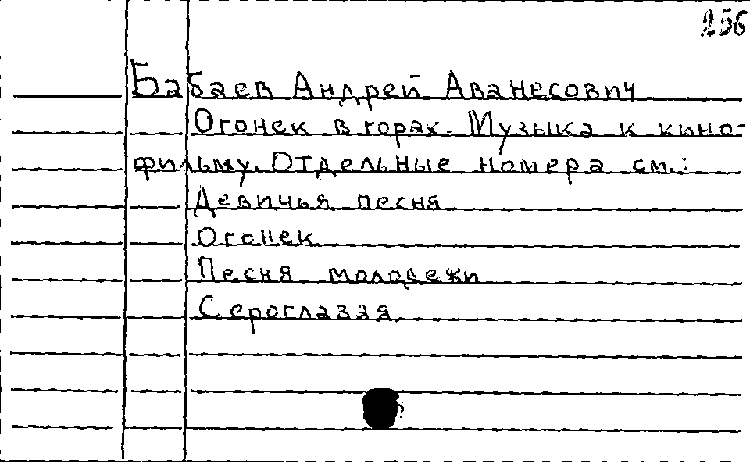 256
Бабаев Андрей Аванесович
Огонек в горах. Музыка к кино-
фильму. Отдельные номера см.:
Девичья песня
Огонек
Песня молодежи
Сероглазая